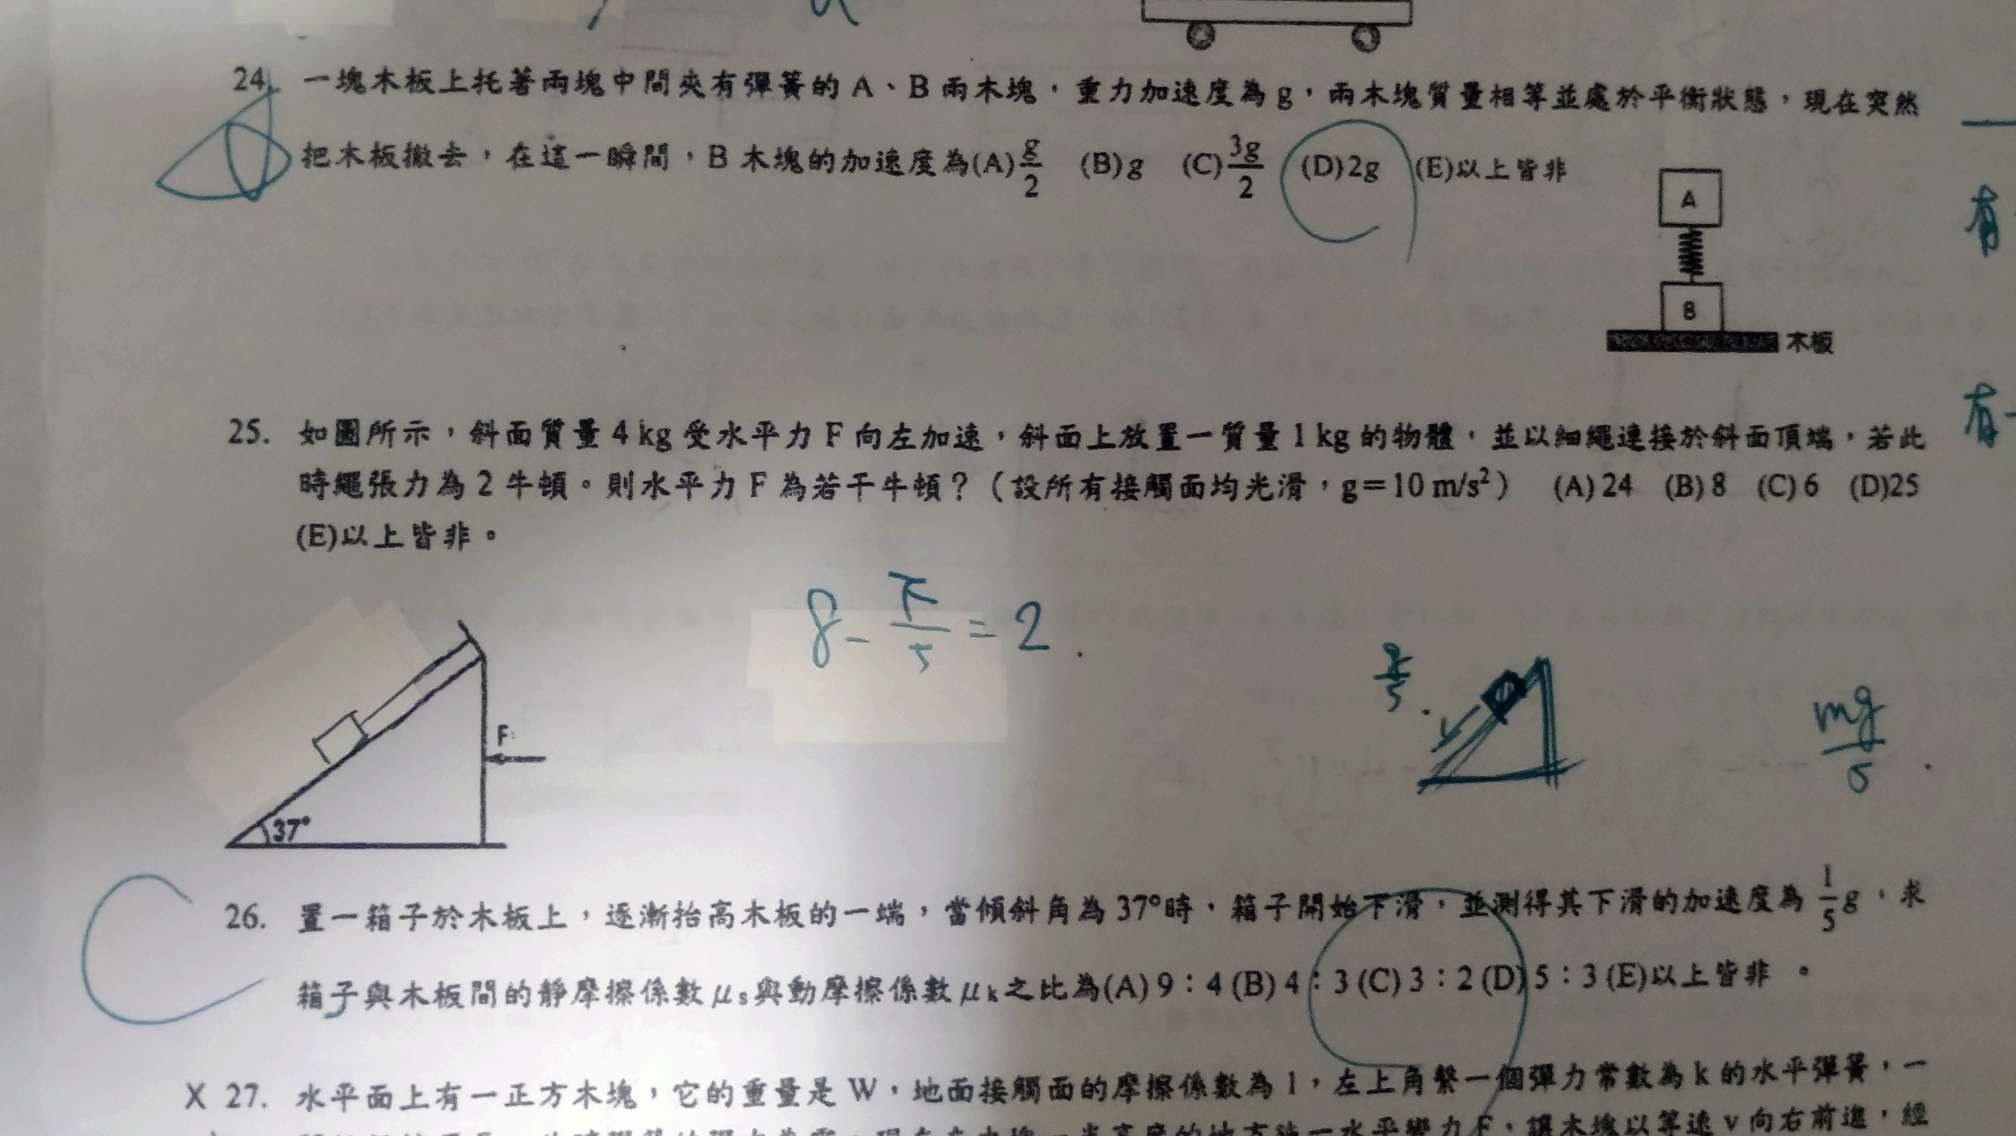 24. 一塊木板上托著兩塊中間夾有彈簧的 A、B 兩木塊，重力加速度為 g，兩木塊質量相等並處於平衡狀態，現在突然
把木板撤去，在這一瞬間，B 木塊的加速度為(A) g/2 (B) g (C) 3g/2 (D) 2g (E)以上皆非
A
B
木板
有
25. 如圖所示，斜面質量 4 kg 受水平力 F 向左加速，斜面上放置一質量 1 kg 的物體，並以細繩連接於斜面頂端，若此
時繩張力為 2 牛頓。則水平力 F 為若干牛頓？（設所有接觸面均光滑，g＝10 m/s²） (A) 24 (B) 8 (C) 6 (D)25
有
(E)以上皆非。
8 - F/5 = 2
F
37°
mg/5
26. 置一箱子於木板上，逐漸抬高木板的一端，當傾斜角為 37°時，箱子開始下滑，並測得其下滑的加速度為 1/5 g，求
C
箱子與木板間的靜摩擦係數 μs 與動摩擦係數 μk 之比為(A) 9：4 (B) 4：3 (C) 3：2 (D) 5：3 (E)以上皆非 。
X 27. 水平面上有一正方木塊，它的重量是 W，地面接觸面的摩擦係數為 1，左上角繫一個彈力常數為 k 的水平彈簧，一
一水平變力 F，讓木塊以等速 v 向右前進，經